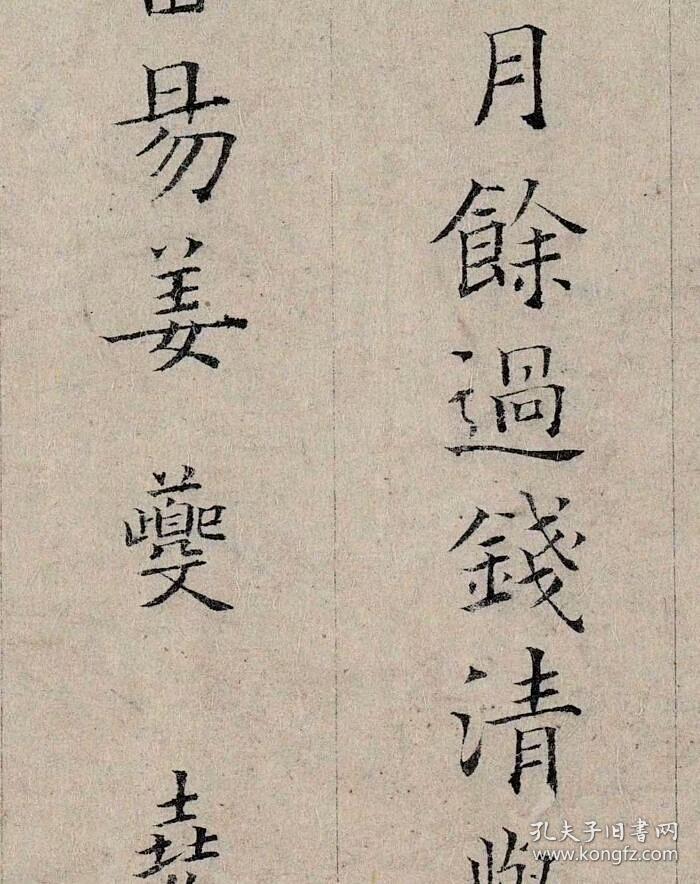 月餘過錢清
昜姜夔堯
孔夫子旧书网
www.kongfz.com